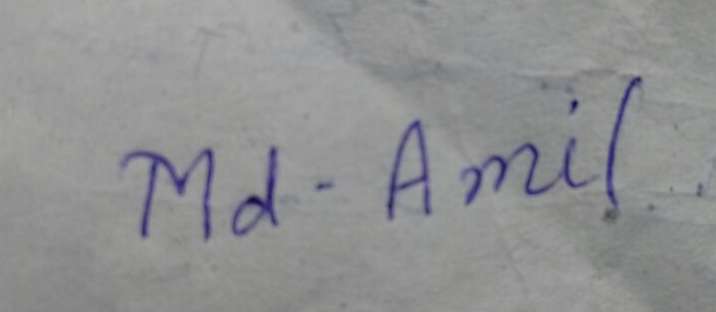 Md - Amil